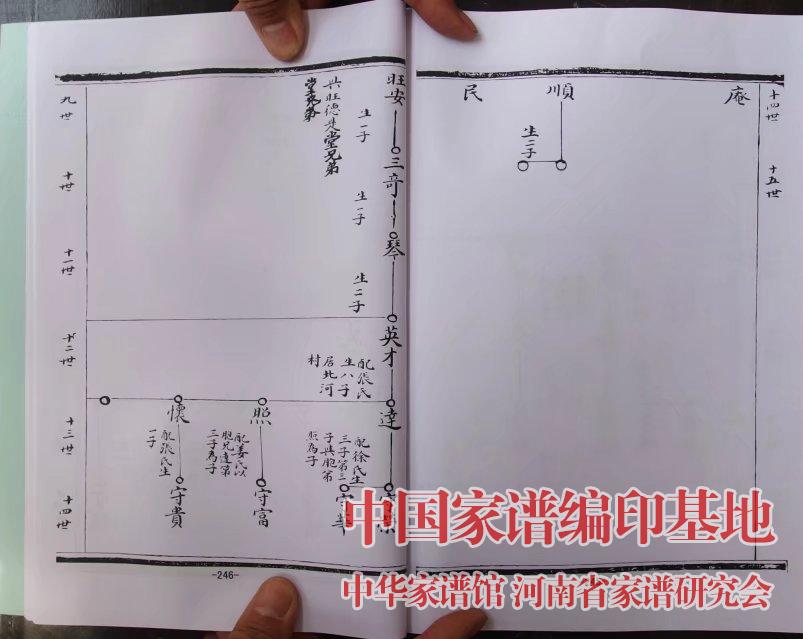 十四世
十五世
庵
順
民
生二子
旺安
共旺德是堂兄弟
生一子
三奇
生一子
琴
生二子
英才
配張氏
生八子
居北河
村
達
照
懷
配徐氏生
三子第三
子共胞弟
照為子
配姜氏以
胞兄達第
三子為子
配張氏生
一子
守富
守貴
九世
十世
十一世
十二世
十三世
十四世
-246-
中国家谱编印基地
中华家谱馆 河南省家谱研究会